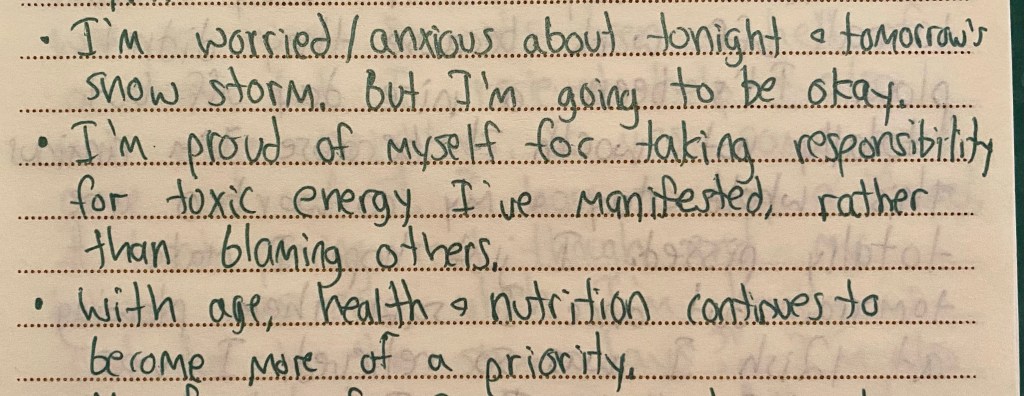 • I'm worried/anxious about tonight & tomorrow's
snow storm. But I'm going to be okay.
• I'm proud of myself for taking responsibility
for toxic energy I've manifested, rather
than blaming others.
• With age, health & nutrition continues to
become more of a priority.